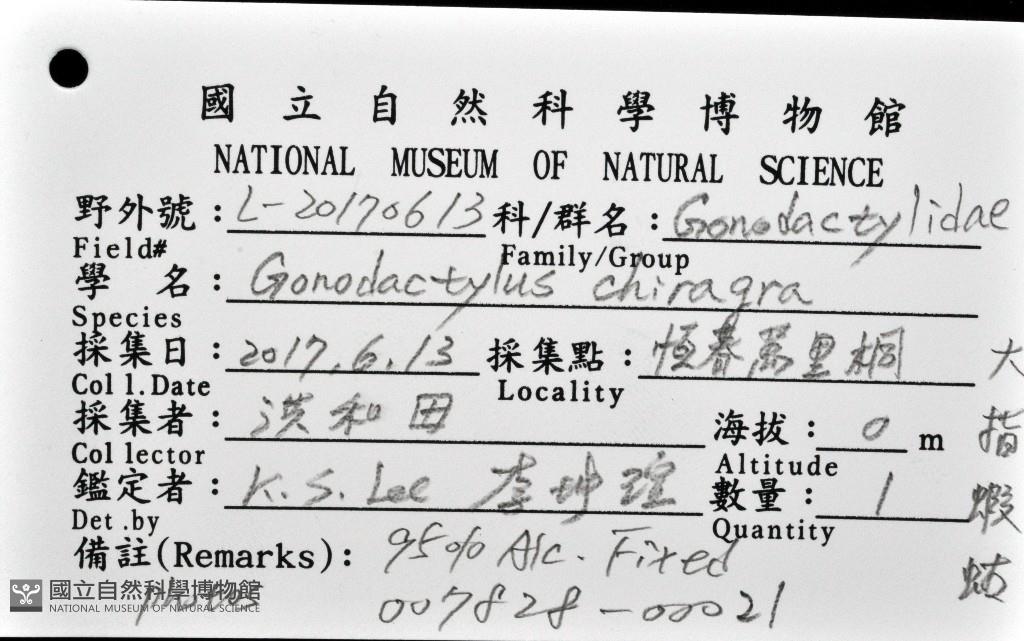 國立自然科學博物館
NATIONAL MUSEUM OF NATURAL SCIENCE
野外號：L-20170613 科/群名：Gonodactylidae
Field# Family/Group
學名：Gonodactylus chiragra
Species
採集日：2017.6.13 採集點：恆春萬里桐
Coll.Date Locality
採集者：洪和田 海拔：0 m
Collector Altitude
鑑定者：K.S. Lee 李坤瑄 數量：1
Det.by Quantity
備註(Remarks)：95% Alc. Fixed
007828-00021
大指蝦蛄
國立自然科學博物館
NATIONAL MUSEUM OF NATURAL SCIENCE